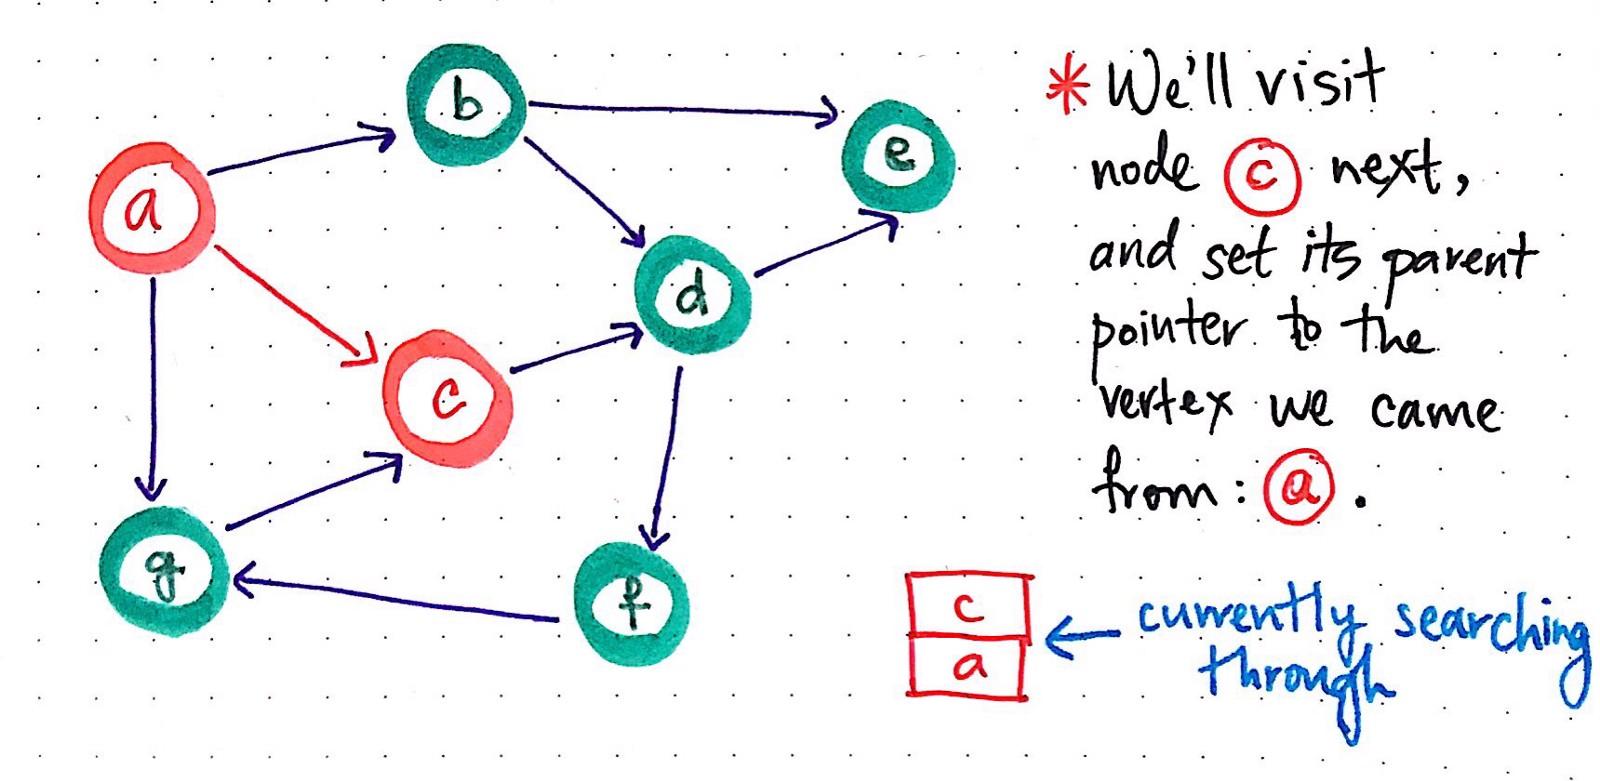 b
e
a
d
c
g
f
* We'll visit
node c next,
and set its parent
pointer to the
vertex we came
from: a.
c
a
← currently searching
through